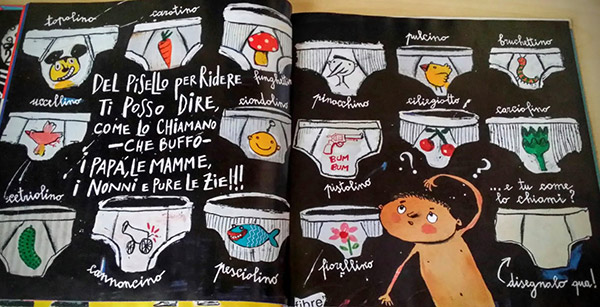 topolino
carotino
funghetto
DEL PISELLO PER RIDERE
TI POSSO DIRE,
COME LO CHIAMANO
—CHE BUFFO—
I PAPÀ, LE MAMME,
I NONNI E PURE LE ZIE!!!
uccellino
ciondolino
cetriolino
cannoncino
pesciolino
pinocchino
pulcino
bruchettino
ciliegiotto
carciofino
BUM
BUM
pistolino
? ?
fiorellino
...e tu come
lo chiami?
disegnalo qua!
fibre